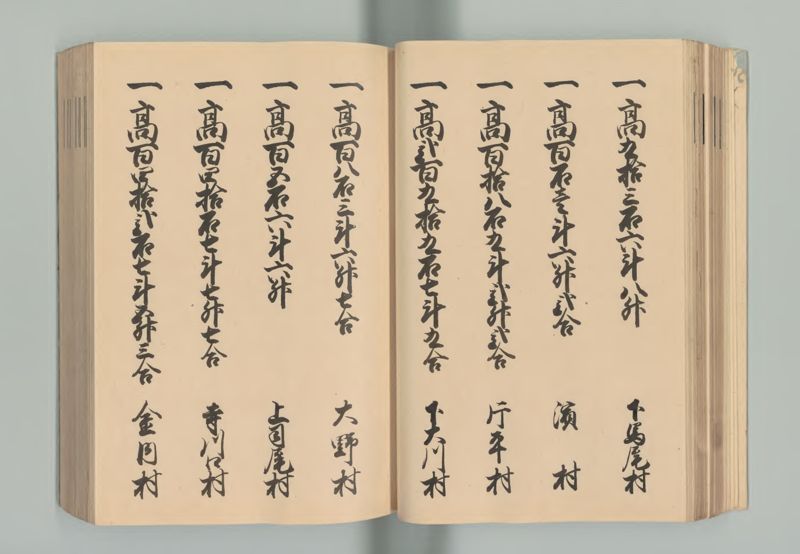 一高九拾三石六斗八升 下馬尾村
一高百石壱斗六升弐合 濱村
一高百拾八石九斗弐升弐合 片平村
一高弐百九拾九石七斗九合 下大川村
一高百八石三斗六升七合 大野村
一高百五石六斗六升 上馬尾村
一高百四拾石七斗七升七合 寺川口村
一高百四拾弐石七斗五升三合 金田村